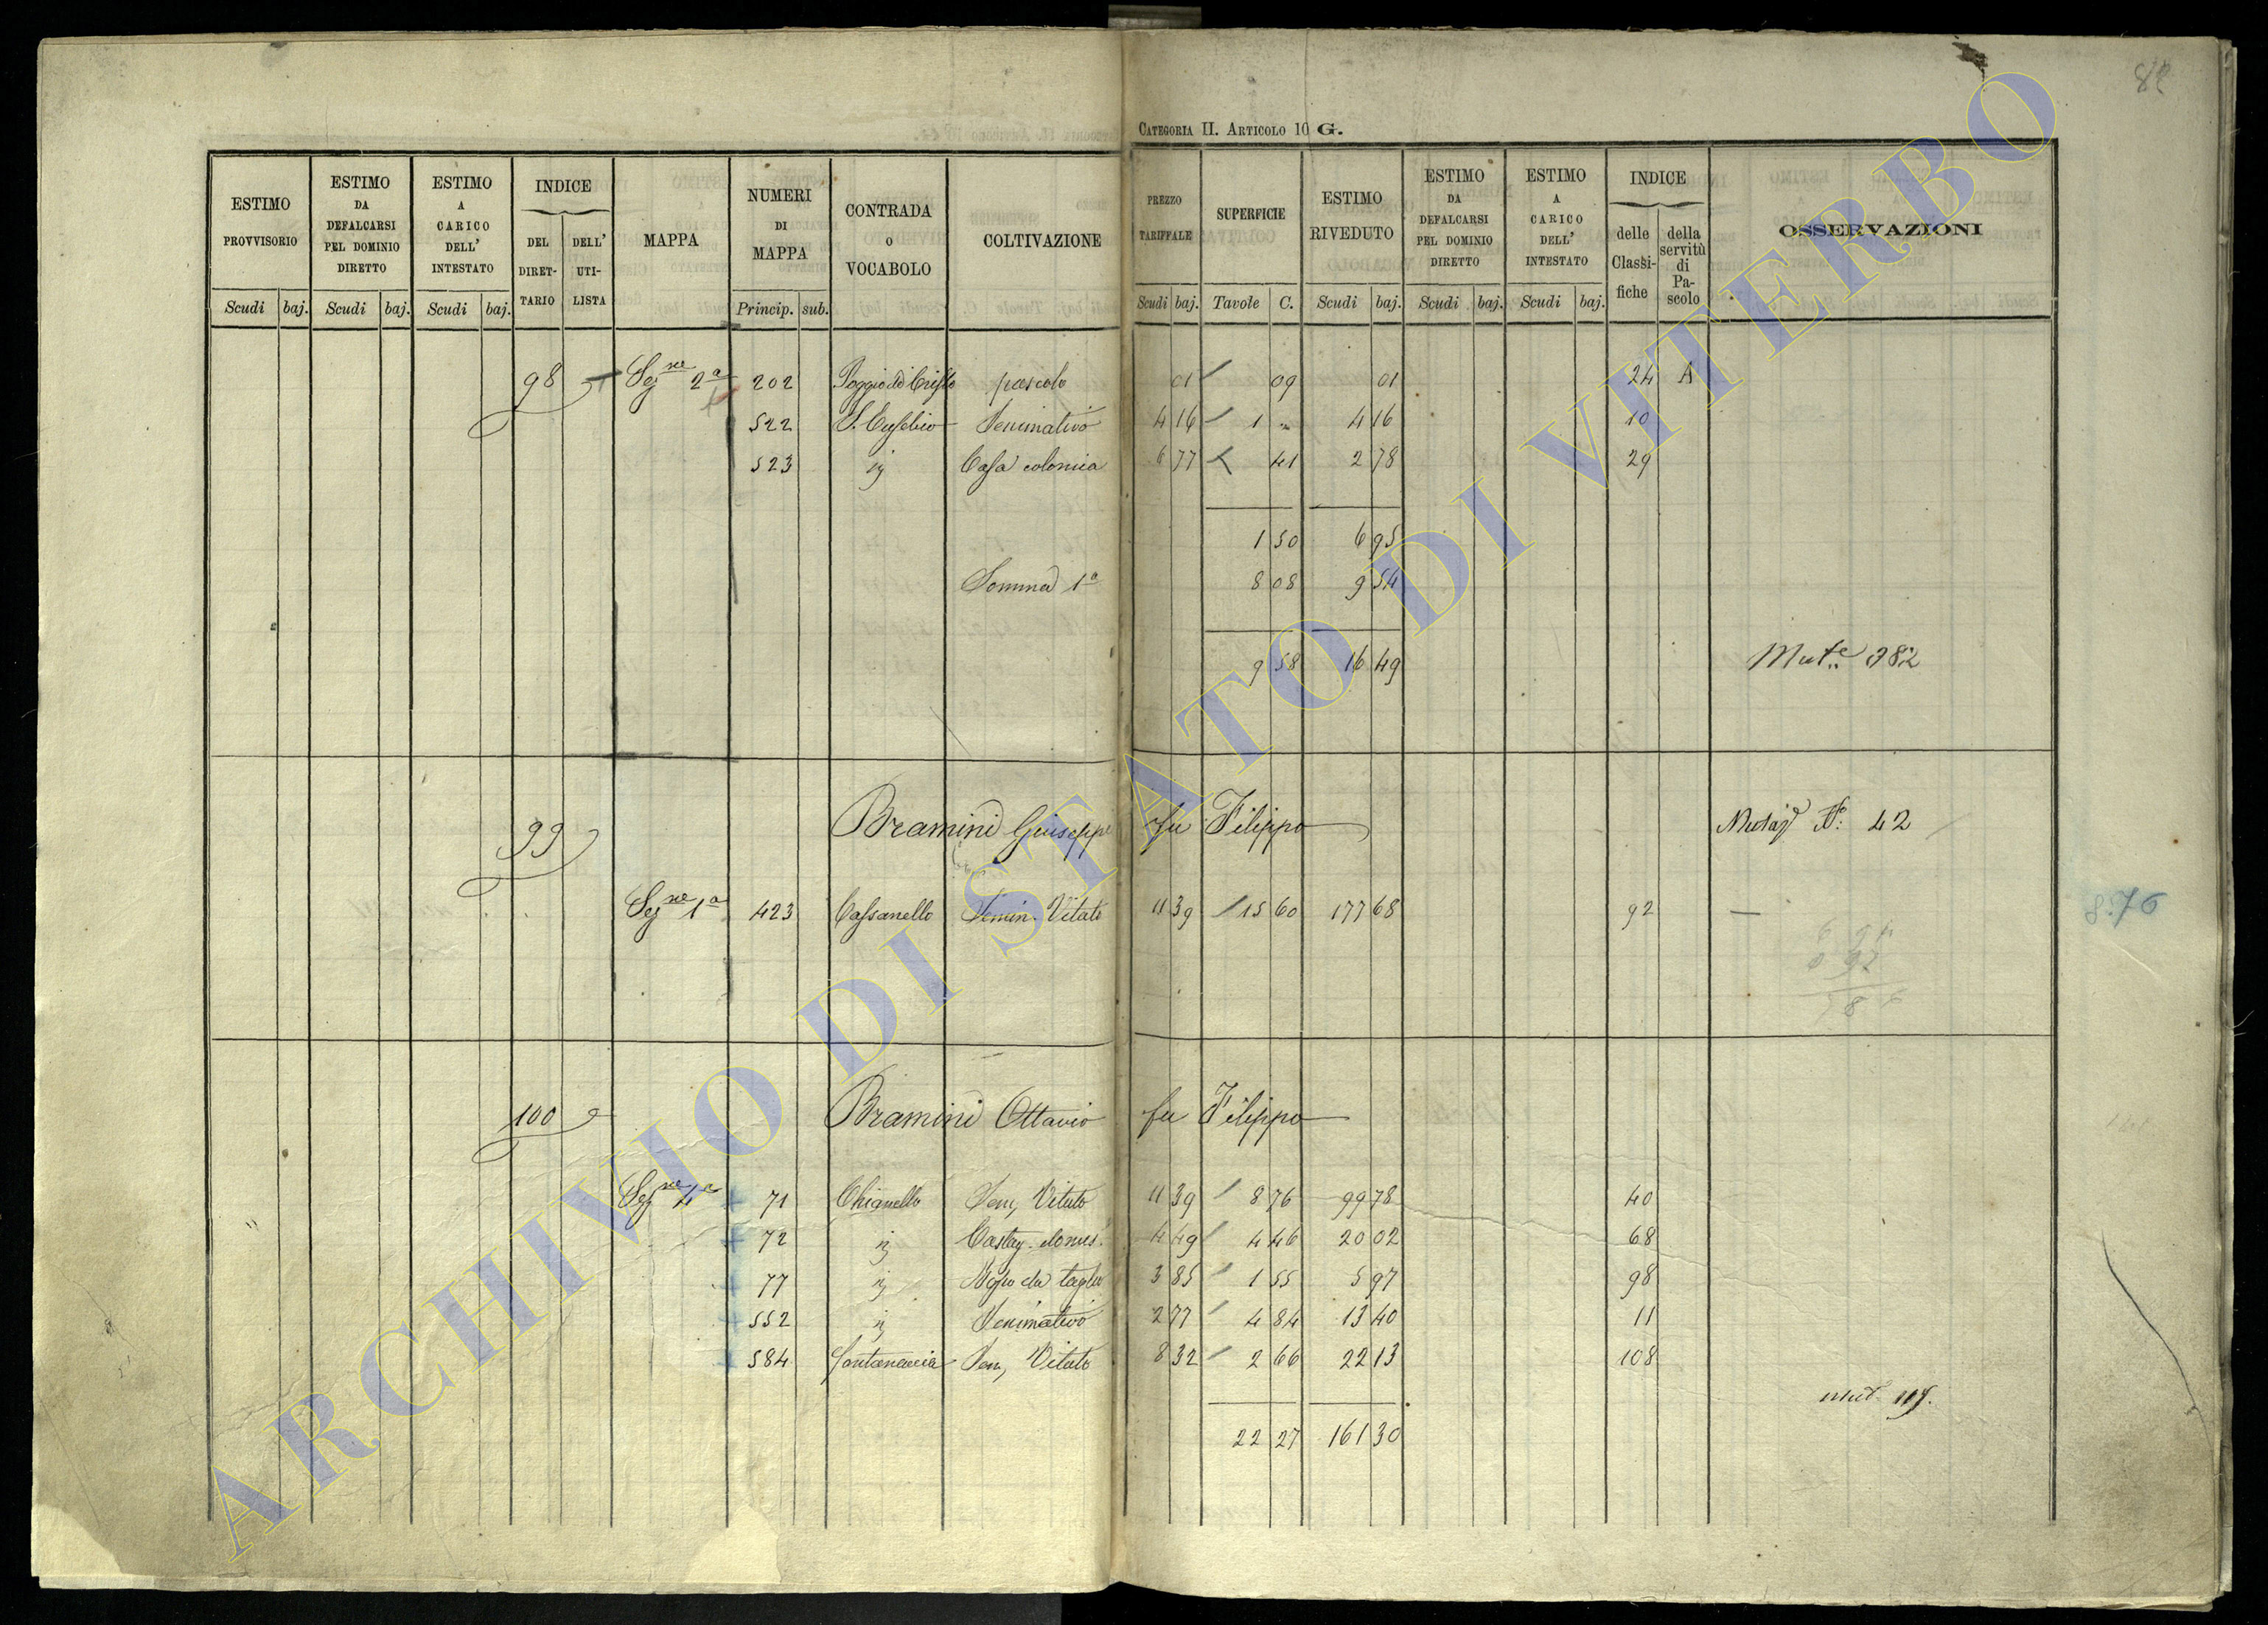 82
CATEGORIA II. ARTICOLO 10 G.
ESTIMO PROVVISORIO
ESTIMO DA DEFALCARSI PEL DOMINIO DIRETTO
ESTIMO A CARICO DELL' INTESTATO
INDICE
DEL DIRETTARIO
DELL' UTILISTA
MAPPA
NUMERI DI MAPPA
CONTRADA O VOCABOLO
COLTIVAZIONE
PREZZO TARIFFALE
SUPERFICIE
ESTIMO RIVEDUTO
ESTIMO DA DEFALCARSI PEL DOMINIO DIRETTO
ESTIMO A CARICO DELL' INTESTATO
INDICE
delle Classifiche
della servitù di Pascolo
OSSERVAZIONI
Scudi baj. Scudi baj. Scudi baj. Princip. sub. Scudi baj. Tavole C. Scudi baj. Scudi baj. Scudi baj.
98 Sezne 2a 202 Poggio del Cristo pascolo 01 09 01 24 A
522 S. Eusebio Seminativo 4 16 1 " 4 16 10
523 ij Casa colonica 6 77 41 2 78 29
1 50 6 95
Somma 1a 8 08 9 54
9 58 16 49 Mute 382
99 Bramini Giuseppe fu Filippo N: 42
Sezne 1a 423 Cassanello Semin. Vitato 11 39 15 60 177 68 92 —
8.76
100 Bramini Ottavio fu Filippo
Sezne 1a 71 Chianello Sem, Vitato 11 39 8 76 99 78 40
72 ij Castag. domes. 4 49 4 46 20 02 68
77 ij da taglio 3 85 1 55 5 97 98
552 ij Seminativo 2 77 4 84 13 40 11
584 Sem, Vitato 8 32 2 66 22 13 108
mut.
22 27 161 30
ARCHIVIO DI STATO DI VITERBO